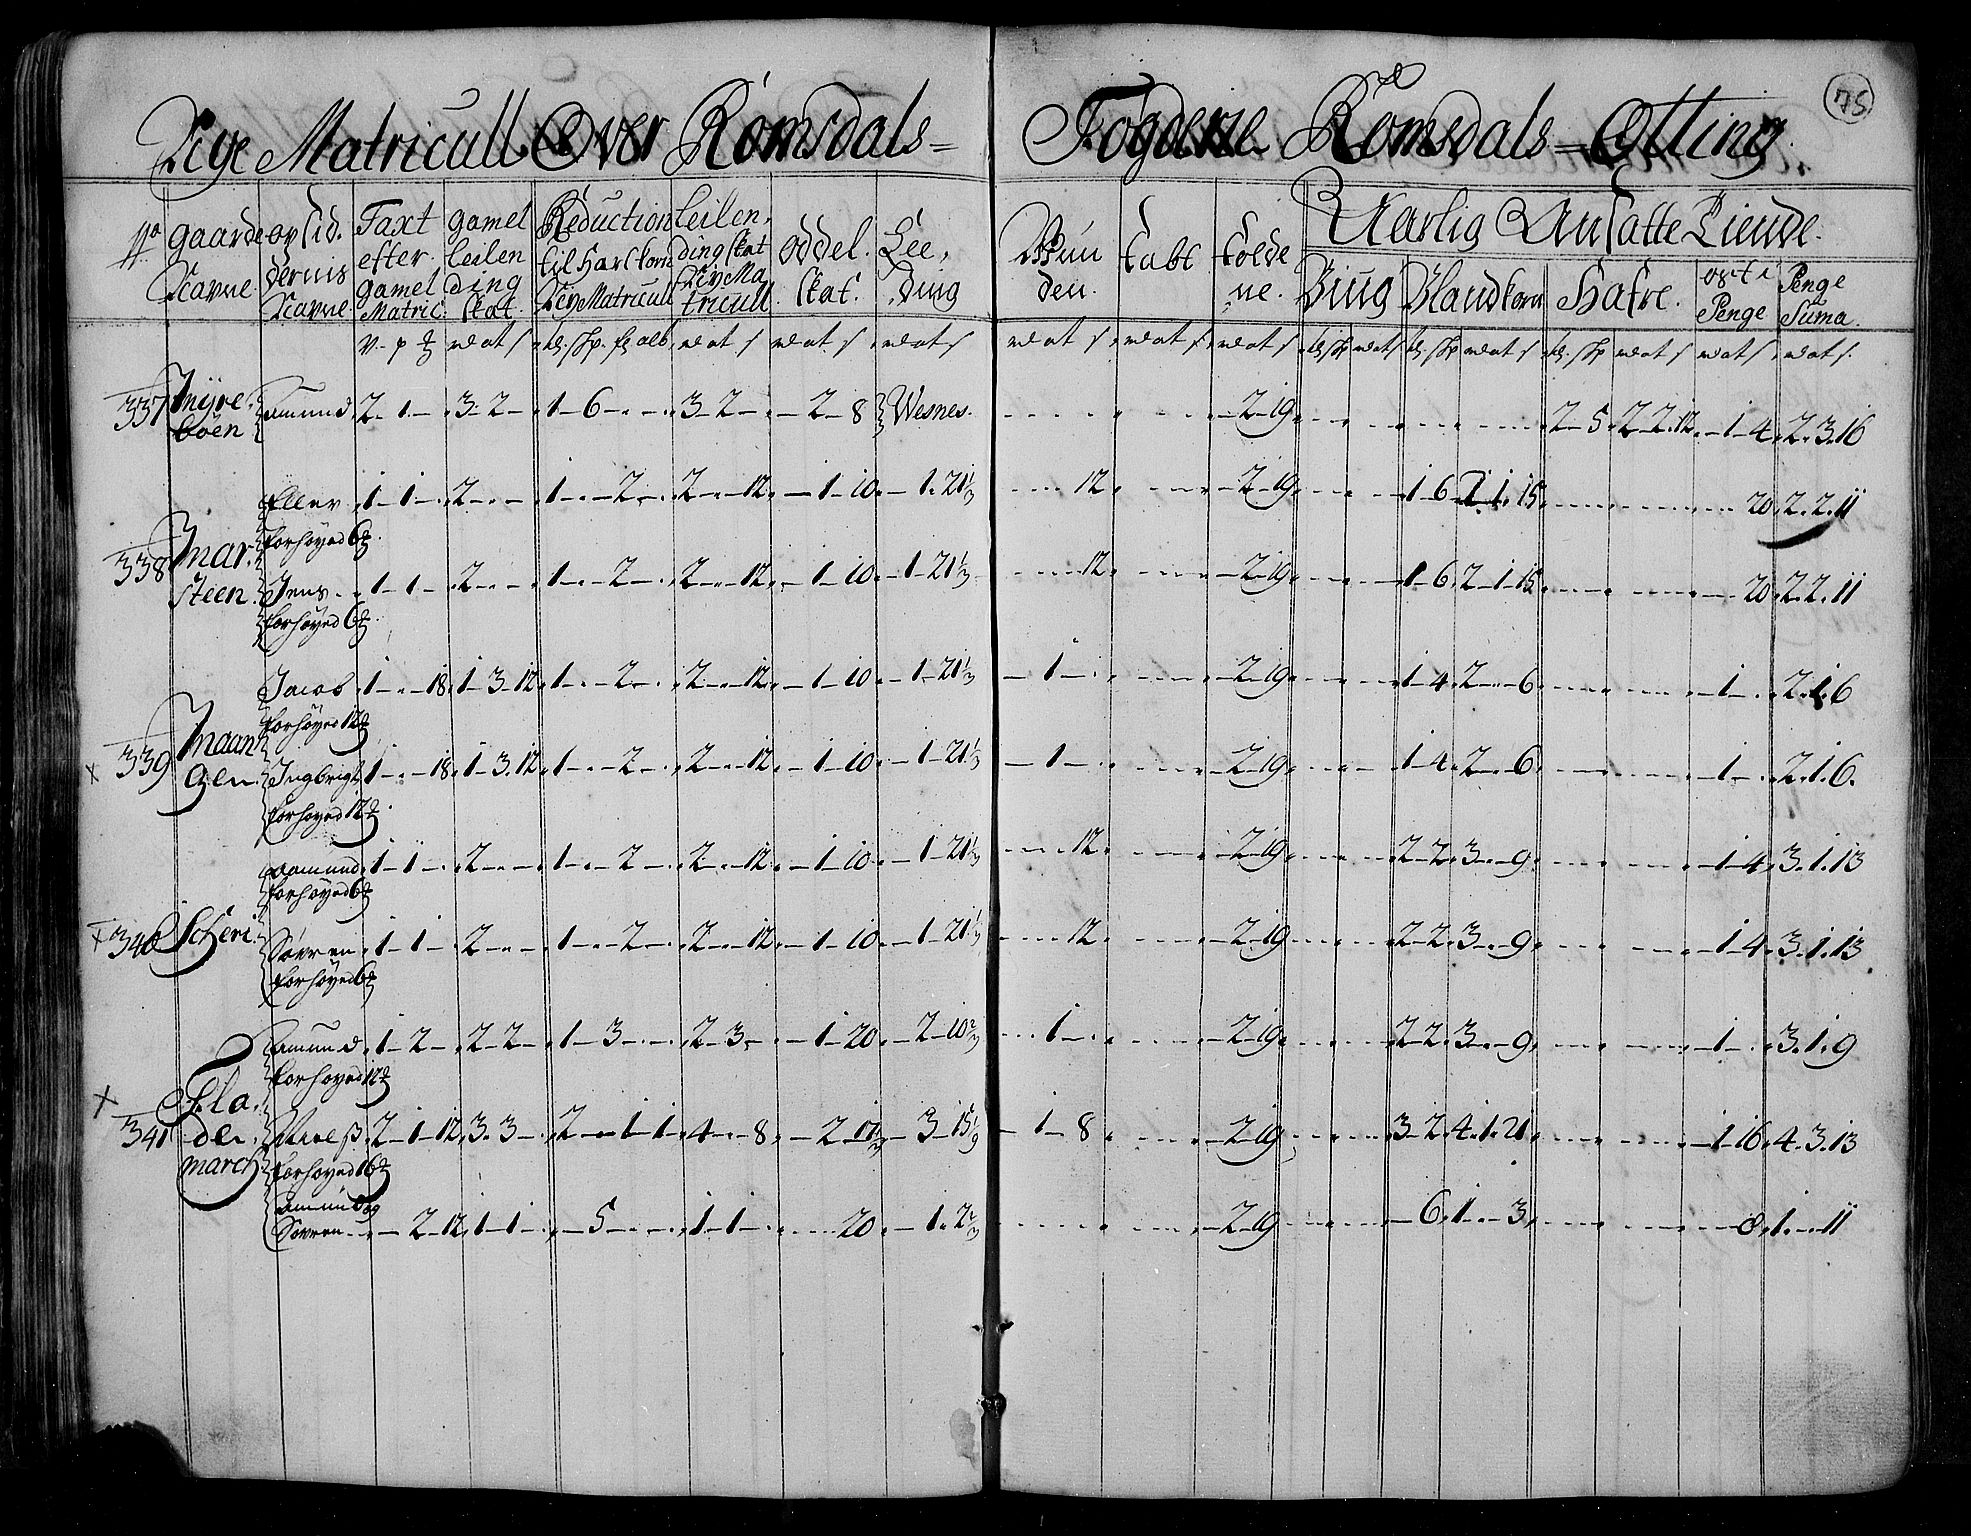 Nye Matricull Over Romsdals= Fogderie Romsdals=Otting
75
No gaarde Navne opsid. dernis Navne Taxt efter gamel Matric: gamel leilen ding skat Reduction til Hartkorn Ney Matricull Leilen, ding skat Ney Matricull oddel. skat. Lee, Ding
Wun den. tabt tolde ne. Aarlig Ansatte Tiende.
Biug Blandkorn Hafre. oste Penge Penge Suma.
337 Myre böen Amund 2-1- 3-2- 1-6- 3-2- -2-8 Wesnes. -2-19 2-5 2-2-12 -1-4 2-3-16
Ellev 1-1- 2- 1-2- 2-12 -1-10 -1-21 1/3 12 -2-19 1-6 2-1-15 20 2-2-11
forhöyed 6
338 Mar steen Jens 1-1- 2- 1-2- 2-12 -1-10 -1-21 1/3 12 -2-19 1-6 2-1-15 20 2-2-11
forhöyed 6
Jacob 1-18 1-3-12 1-2- 2-12 -1-10 -1-21 1/3 -1- -2-19 1-4 2-6 -1- 2-1-6
forhöyed 12
339 Maan gen Ingbrigt 1-18 1-3-12 1-2- 2-12 -1-10 -1-21 1/3 -1- -2-19 1-4 2-6 -1- 2-1-6
forhöyed 12
Aamund 1-1- 2- 1-2- 2-12 -1-10 -1-21 1/3 12 -2-19 2-2 3-9 -1-4 3-1-13
forhöyed 6
340 Scheri Sövren 1-1- 2- 1-2- 2-12 -1-10 -1-21 1/3 12 -2-19 2-2 3-9 -1-4 3-1-13
forhöyed 6
Amund 1-2- 2-2- 1-3- 2-3- -1-20 -2-10 2/3 -1- -2-19 2-2 3-9 -1- 3-1-9
forhöyed 12
341 Fla de march 2-1-12 3-3- 2-1-1 4-8 -2-17 1/2 -3-15 1/9 -1-8 -2-19 3-2 4-1-21 -1-16 4-3-13
forhöyed 16
Amund og
Sövren -2-12 1-1- -5- 1-1- 20 -1-2 2/3 -2-19 -6 1-3 8 1-11